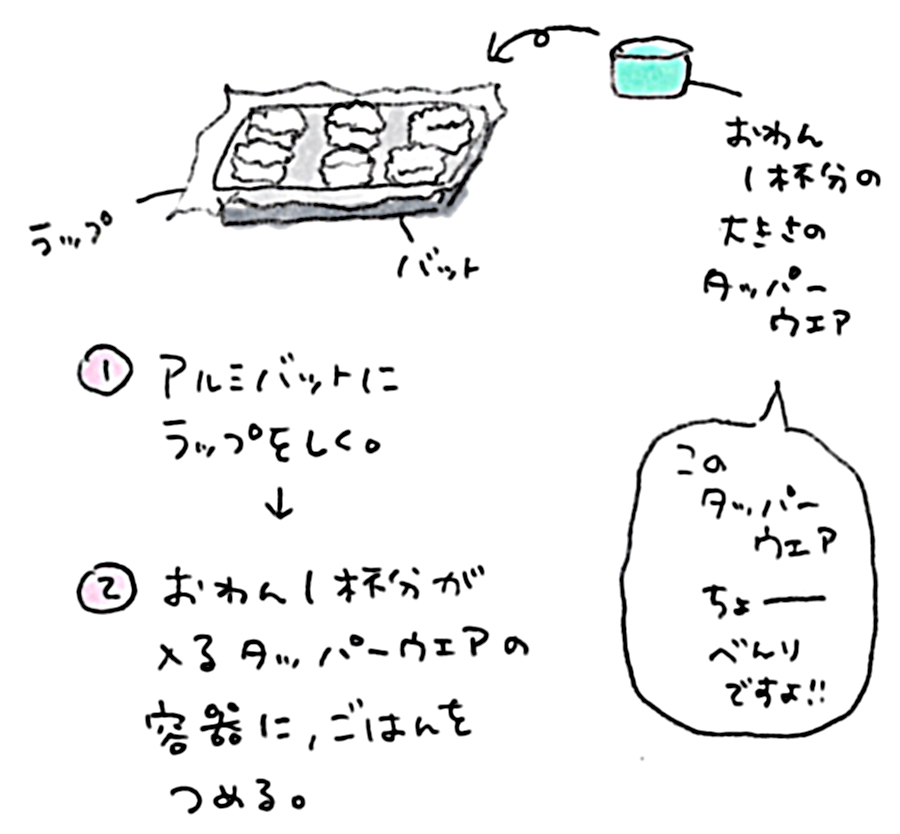 ラップ
バット
おわん
1杯分の
大きさの
タッパー
ウエア
① アルミバットに
ラップをしく。
↓
② おわん1杯分が
入るタッパーウエアの
容器に,ごはんを
つめる。
この
タッパー
ウエア
ちょー
べんり
ですよ!!